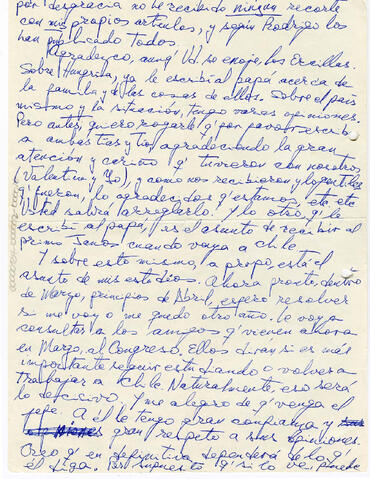 por desgracia no he recibido ningún recorte
con mis propios artículos, y según Rodrigo los
han publicado todos.
Agradezco, aunq' Ud. se enoje, los Ercillas.
Sobre Hungría, ya le escribí al papá acerca de
la familia y de las cosas de ellos. Sobre el país
mismo y la situación, tengo varias opiniones.
Pero antes, quiero rogarle q' por favor escriba
a ambas tías y tío, agradeciendo la gran
atención y cariño q' tuvieron con nosotros
(Valentina y Yo), y como nos recibieron y lo gentiles
q' fueron, lo agradecidos q' estamos, etc. etc.
Usted sabrá arreglarlo. Y lo otro, q' le
escribí al papá, es el asunto de recibir al
primo Janos cuando vaya a Chile.
Y sobre esto mismo, a propo, está el
asunto de mis estudios. Ahora pronto, dentro
de Marzo, principios de Abril, espero resolver
si me voy o me quedo otro año. Le voy a
consultar a los amigos q' vienen ahora
en Marzo, al Congreso. Ellos dirán si es más
importante seguir estudiando o volver a
trabajar a Chile. Naturalmente, eso será
lo decisivo. Y me alegro de q' venga el
pepe. A él le tengo gran confianza y
gran respeto a sus opiniones.
Creo q' en definitiva dependerá de lo q'
el diga. Por supuesto q' si lo ve, puede